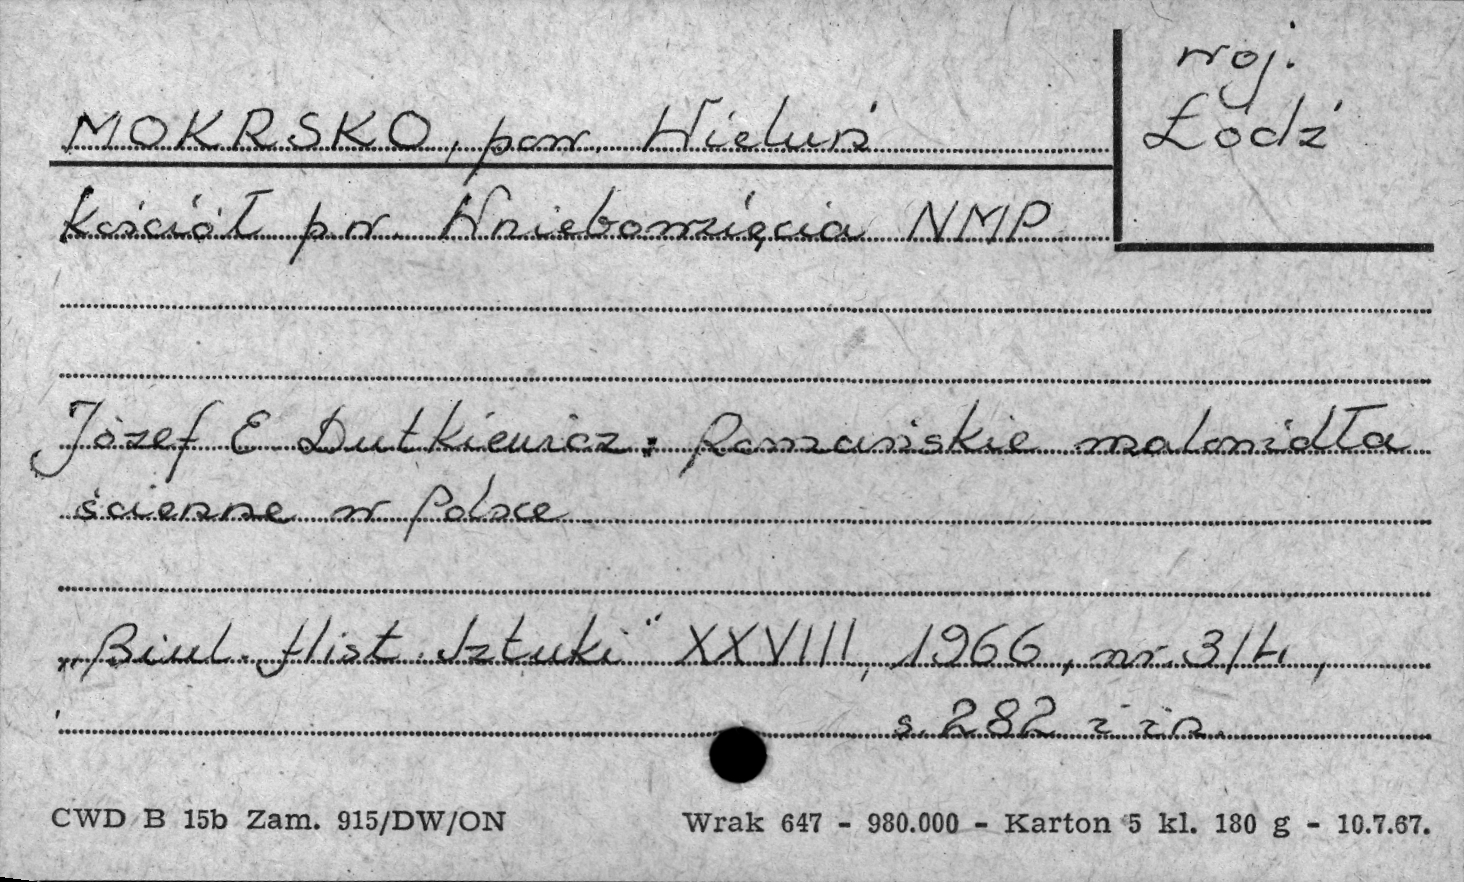 woj.
Łódź
MOKRSKO, pow. Wieluń
Kościół p.w. Wniebowzięcia NMP
Józef E Dutkiewicz: Romańskie malowidła
ścienne w Polsce
„Biul. Hist. Sztuki" XXVIII, 1966, nr. 3/4,
s. 282 i in.
CWD B 15b Zam. 915/DW/ON Wrak 647 - 980.000 - Karton 5 kl. 180 g - 10.7.67.